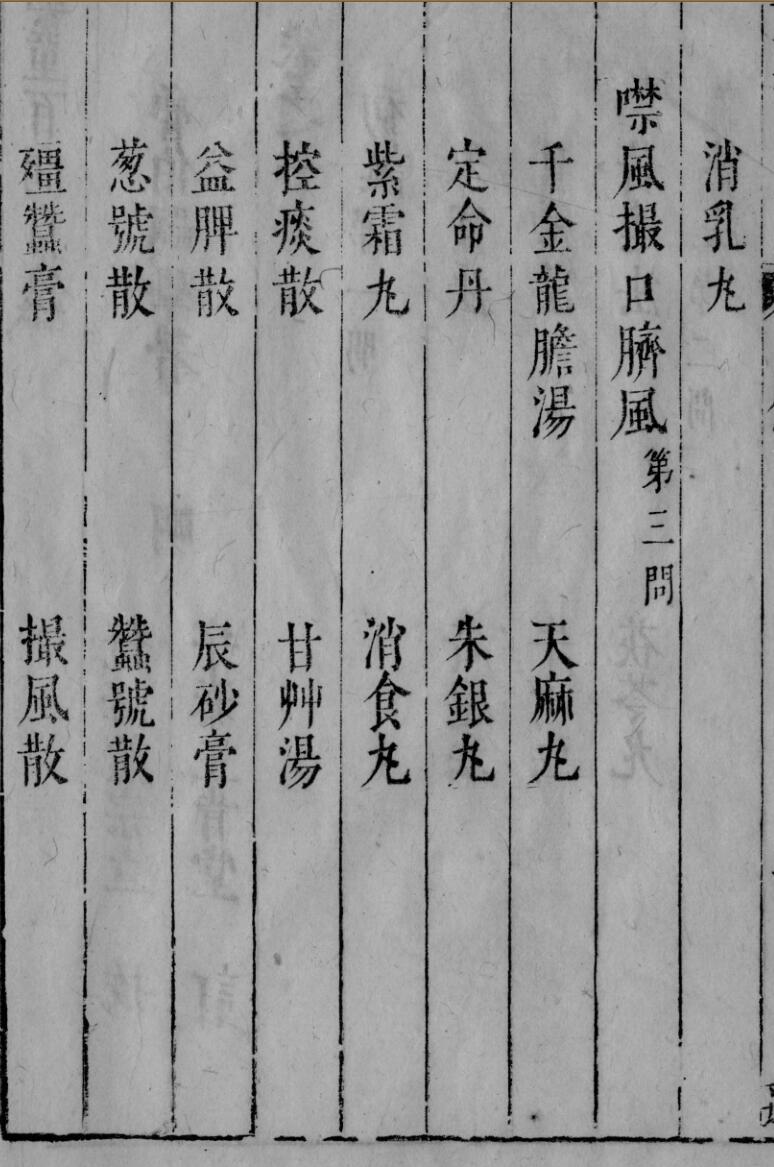 消乳丸
噤風撮口臍風 第三問
千金龍膽湯 天麻丸
定命丹 朱銀丸
紫霜丸 消食丸
控痰散 甘艸湯
益脾散 辰砂膏
葱號散 蠶號散
殭蠶膏 撮風散